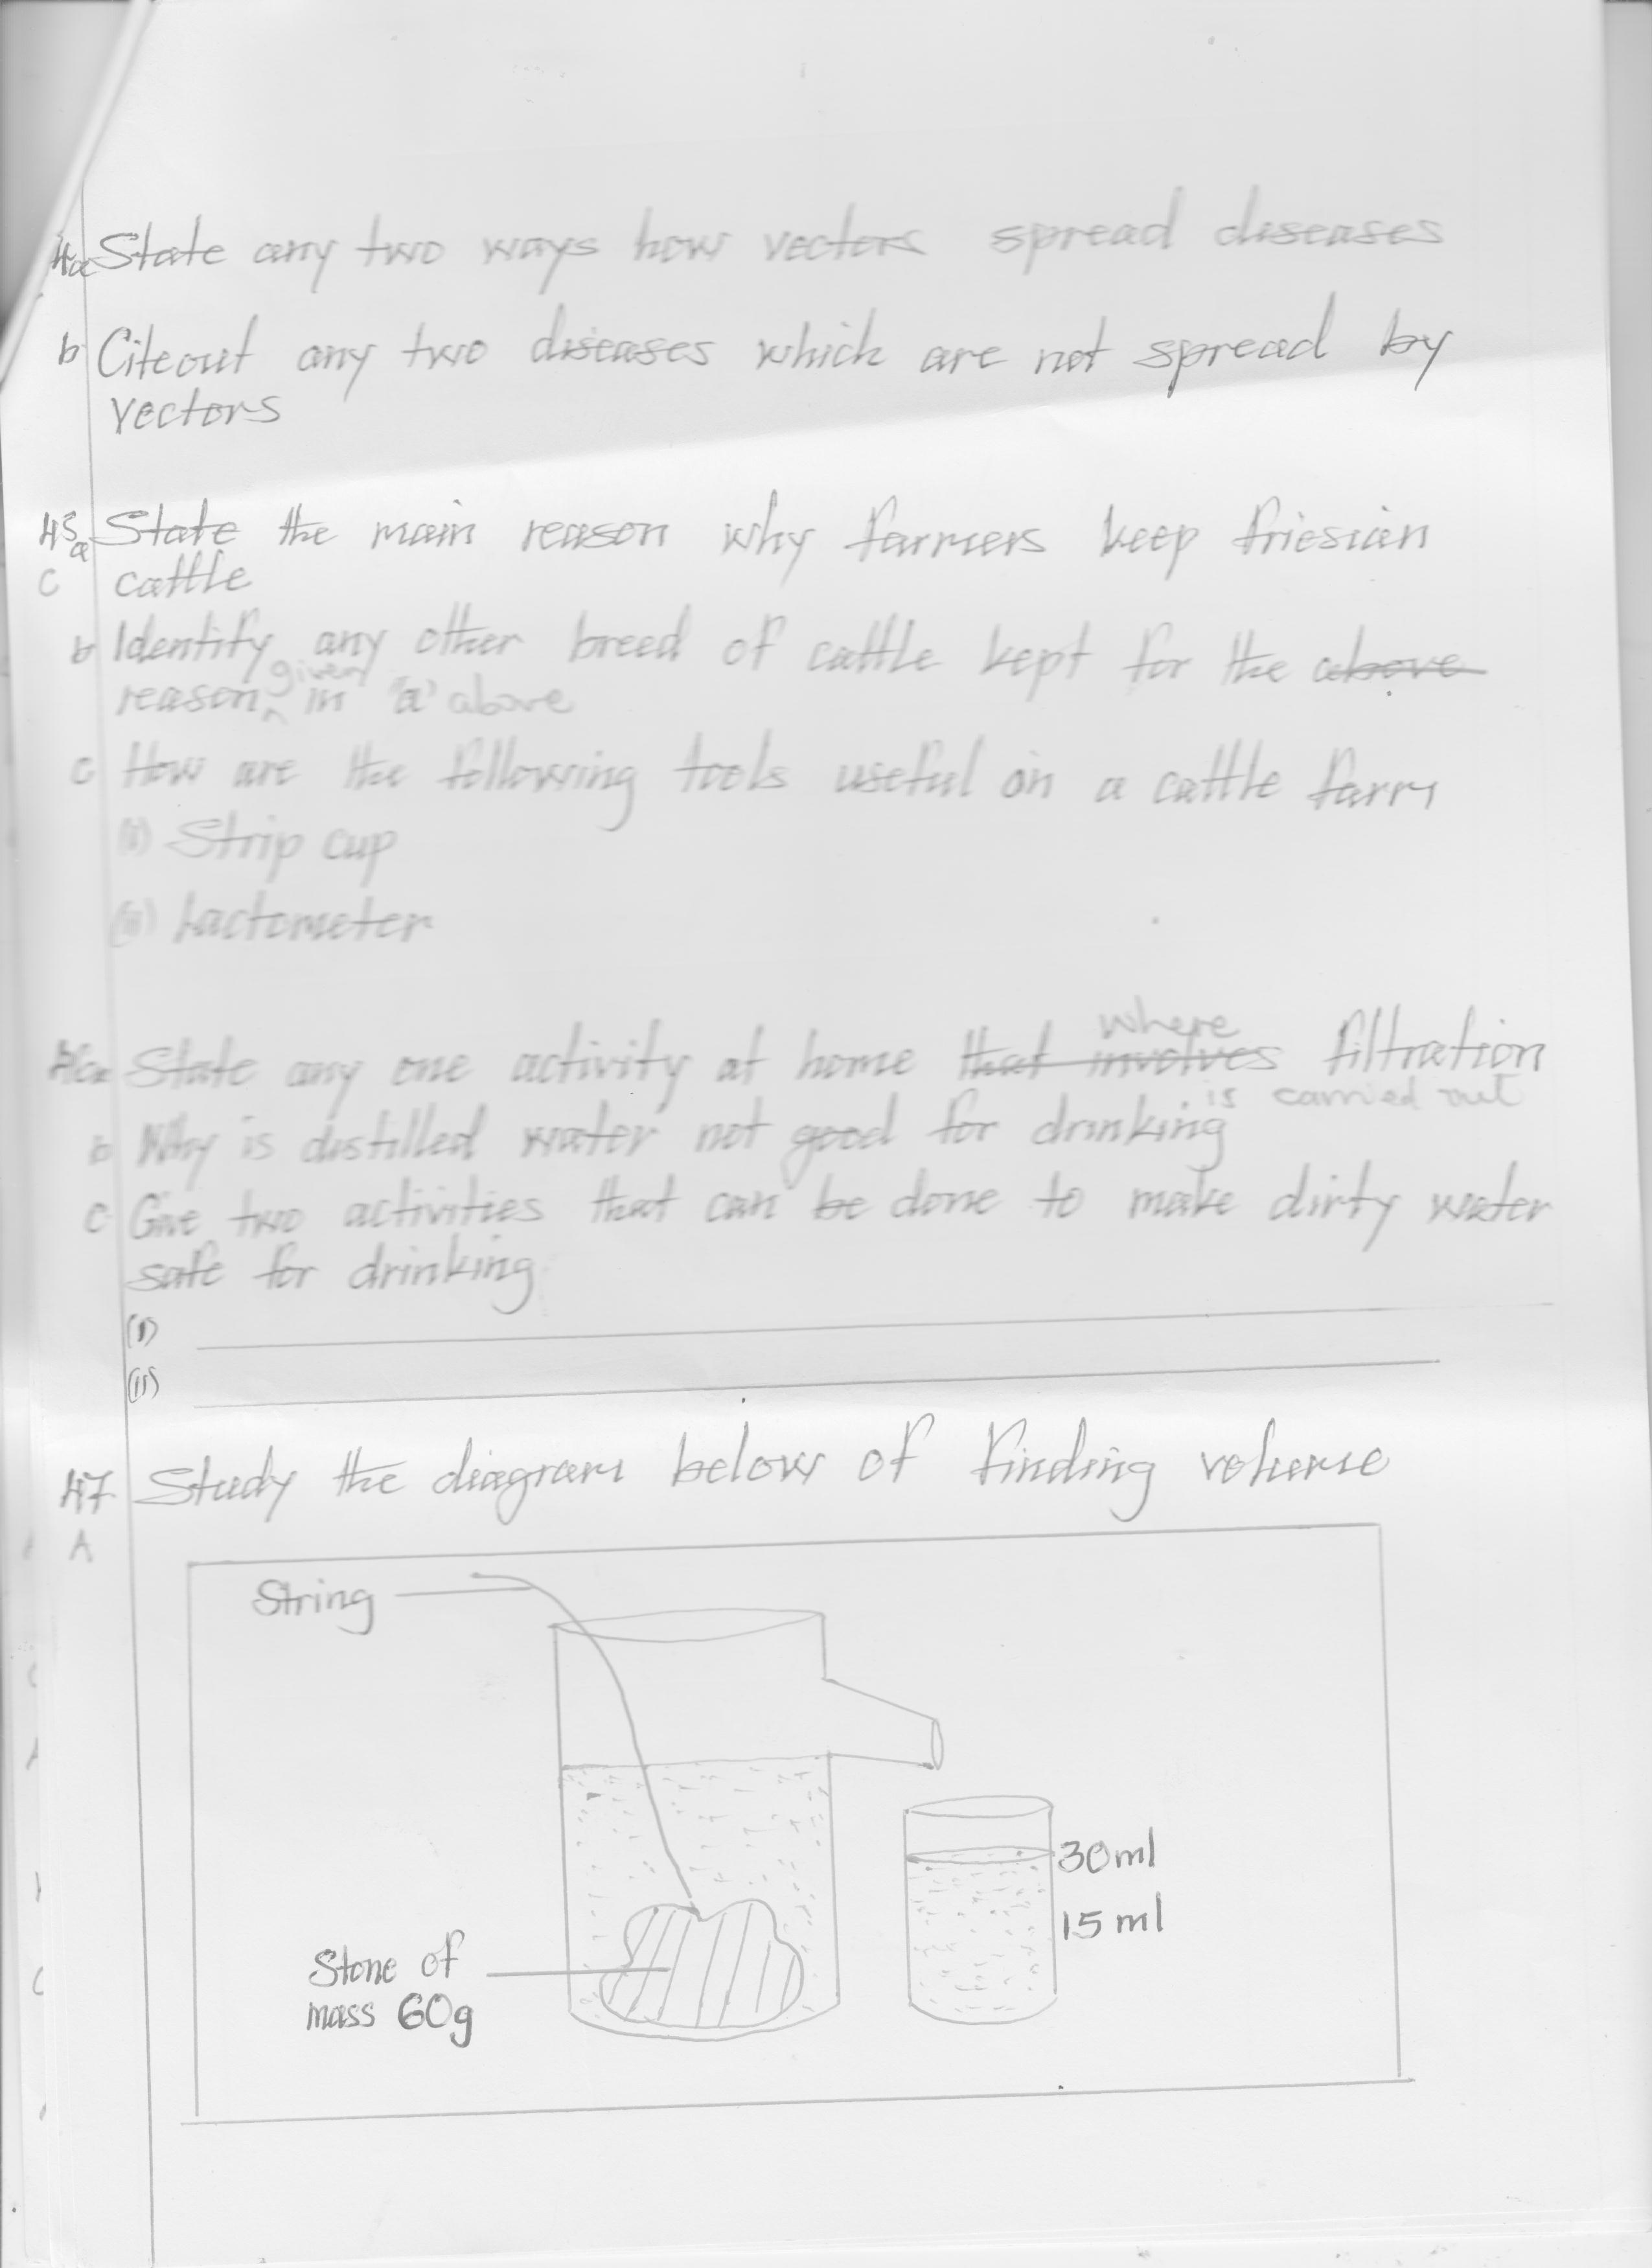 4a State any two ways how vectors spread diseases
b Citeout any two diseases which are not spread by
vectors
45a State the main reason why farmers keep friesian
C cattle
b Identify any other breed of cattle kept for the above
reason given in "a" above
c How are the following tools useful on a cattle farm
(i) Strip cup
(ii) Lactometer
46a State any one activity at home that involves where filtration
is carried out
b Why is distilled water not good for drinking
c Give two activities that can be done to make dirty water
safe for drinking
(i)
(ii)
47 Study the diagram below of finding volume
A
String
30ml
15ml
Stone of
mass 60g